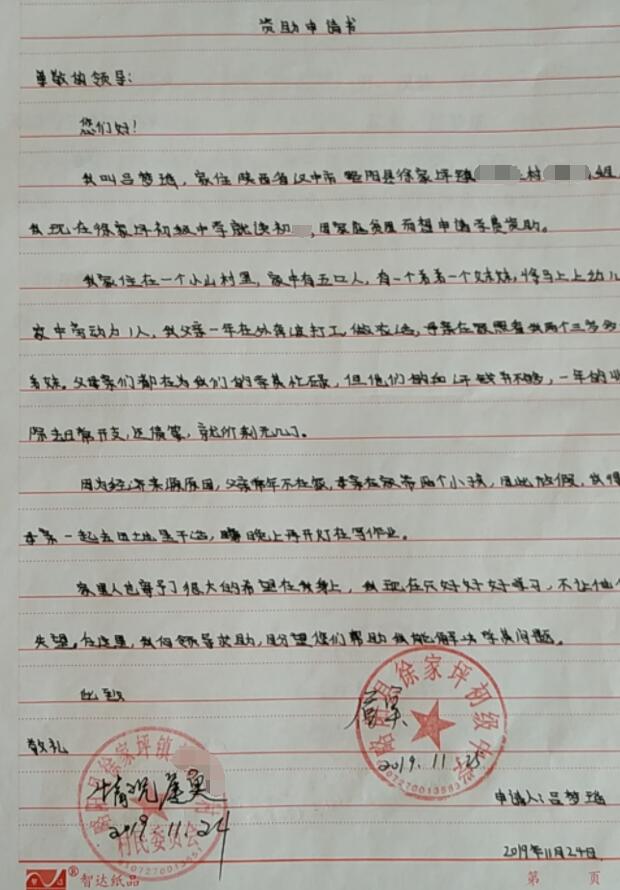 资助申请书
尊敬的领导:
您们好!
我叫吕梦瑶, 家住陕西省汉中市略阳县徐家坪镇 村
我现在徐家坪初级中学就读初 , 因家庭贫困而想申请学费资助。
我家住在一个小山村里, 家中有五口人, 有一个弟弟一个妹妹, 将马上上幼儿
家中劳动力1人, 我父亲一年在外奔波打工, 做农活, 母亲在家照看我两个三岁多
弟妹。父母亲们都在为我们的学费忙碌, 但他们的血汗钱并不够, 一年的收
除去日常开支, 还债等, 就所剩无几了。
因为经济来源原因, 父亲常年不在家, 母亲在家带两个小孩, 因此放假, 我得
母亲一起去田地里干活, 晚上再开灯在写作业。
家里人也寄予了很大的希望在我身上, 我现在只好好好学习, 不让他们
失望。在这里, 我向领导求助, 盼望您们帮助我能解决学费问题。
此致
敬礼
徐家坪初级中学
2019.11.25
徐家坪镇
情况属实
2019.11.24
村民委员会
申请人: 吕梦瑶
2019年11月24日
智达纸品
第 页